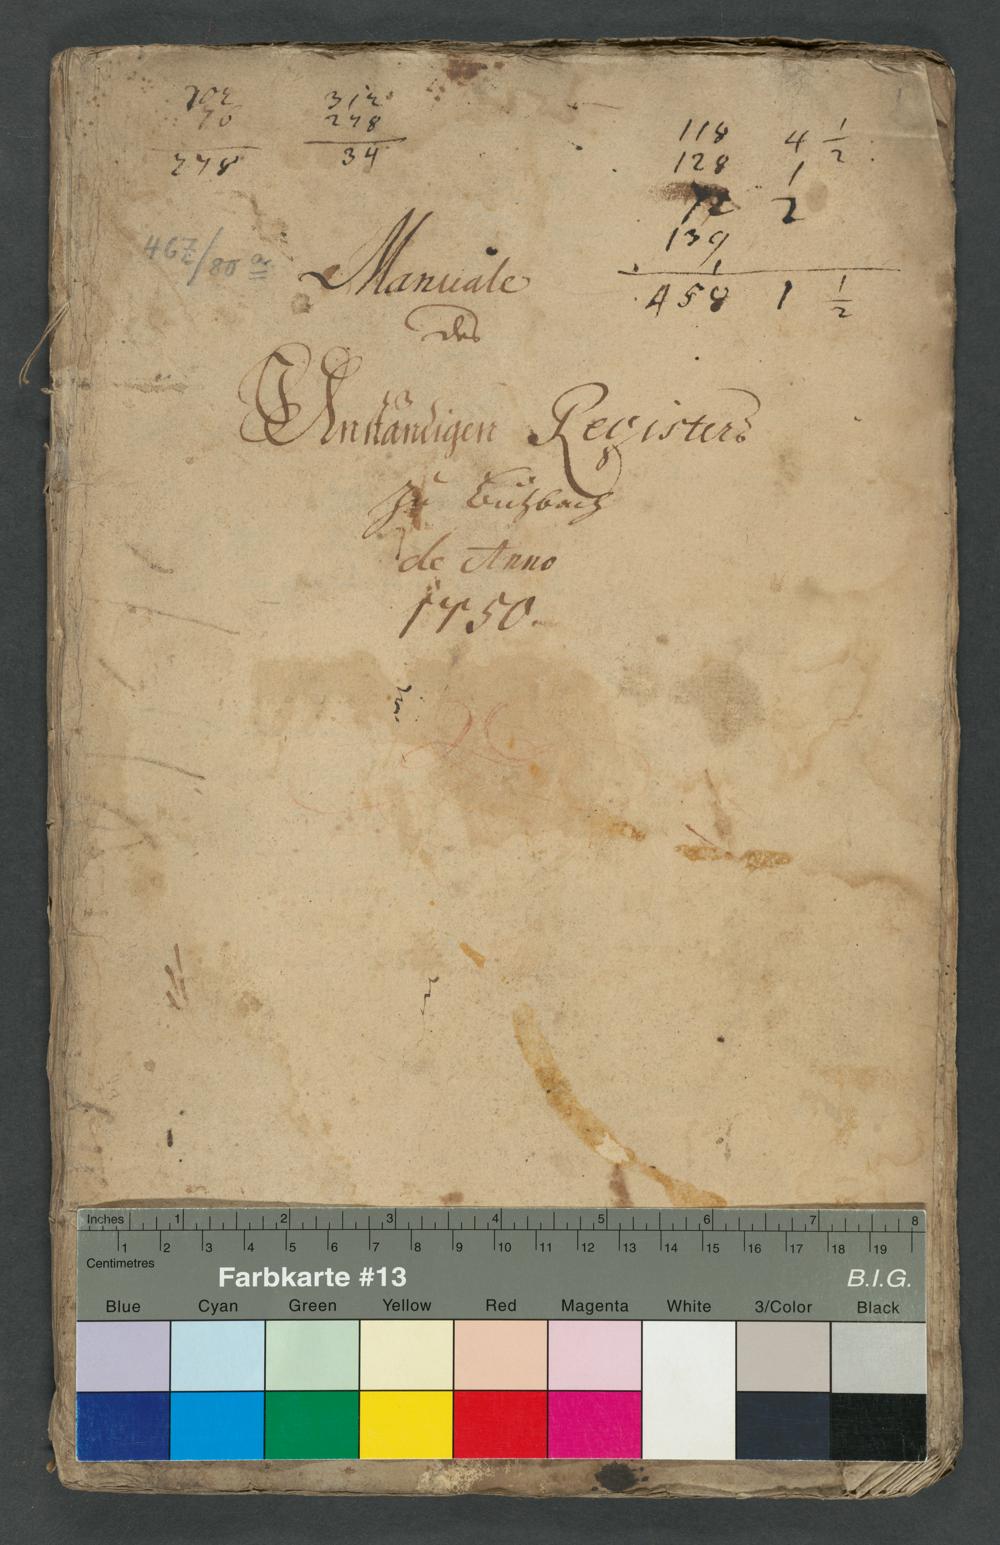 312
278
34
278
118 4 1/2
128 1
12 2
139
458 1 1/2
467/80 a
Manuale
des
Unständigen Registers
zu Butzbach
de Anno
1750.
26
Inches 1 2 3 4 5 6 7 8
1 2 3 4 5 6 7 8 9 10 11 12 13 14 15 16 17 18 19
Centimetres
Farbkarte #13 B.I.G.
Blue Cyan Green Yellow Red Magenta White 3/Color Black